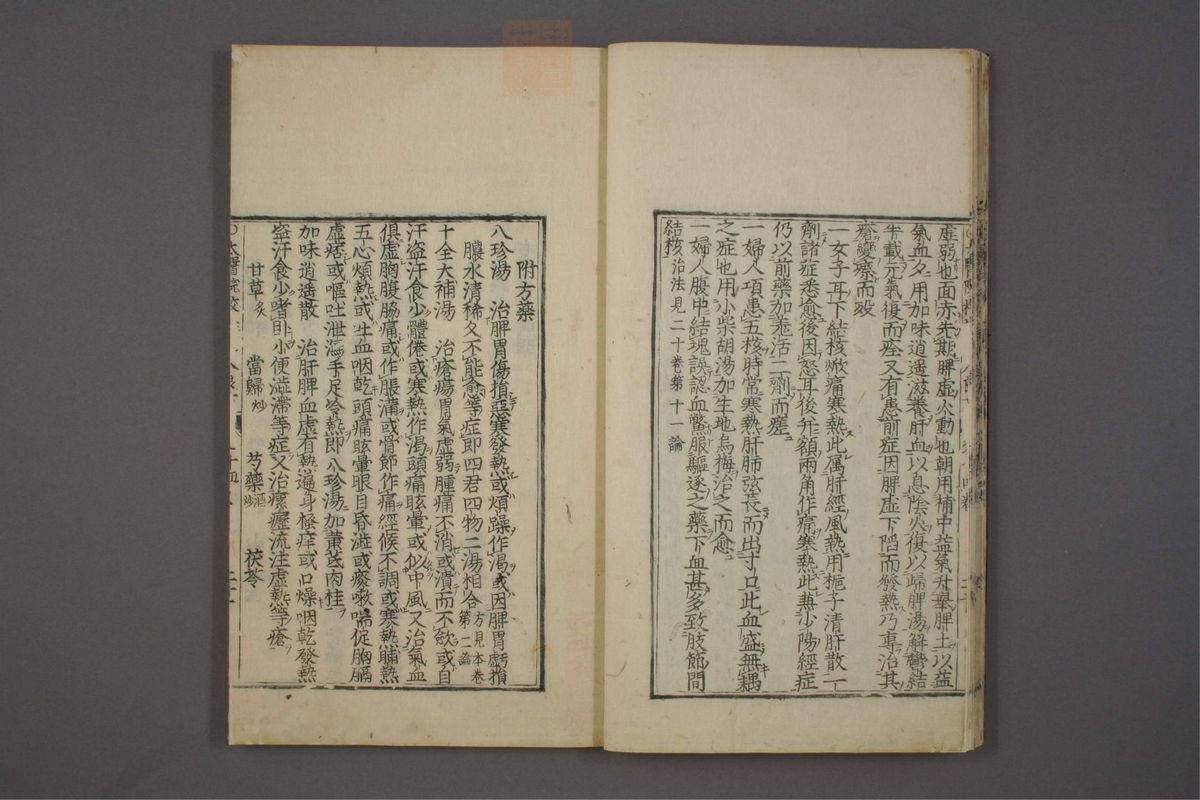 虛弱也面赤先期脾虛火動也朝用補中益氣升舉脾土以益
氣血夕用加味逍遥滋養肝血以息陰火復以歸脾湯解鬱結
半載元氣復而痊又有患前症因脾虛下陷而發熱乃專治其
瘡變瘵而歿
一女子耳下結核㾭痛寒熱此属肝經風熱用梔子清肝散一
劑諸症悉愈後因怒耳後幷額兩角作痛寒熱此兼少陽經症
仍以前藥加羗活二劑而瘥
一婦人項患五核時常寒熱肝肺弦長而出寸口此血盛無耦
之症也用小柴胡湯加生地烏梅治之而愈
一婦人腹中結塊誤認血鱉服驅逐之藥下血甚多致肢節間
結核治法見二十卷第十一論
附方藥
八珍湯 治脾胃傷損惡寒發熱或煩躁作渴或因脾胃虧損
膿水清稀久不能愈等症即四君四物二湯相合方見本卷第二論
十全大補湯 治瘡瘍胃氣虛弱腫痛不消或潰而不歛或自
汗盗汗食少體倦或寒熱作渴頭痛眩暈或似中風又治氣血
俱虛胸腹脇痛或作脹滿或骨節作痛經候不調或寒熱晡熱
五心煩熱或吐血咽乾頭痛眩暈眼目昏澁或痰嗽喘促胸膈
虛痞或嘔吐泄瀉手足冷熱即八珍湯加黄芪肉桂
加味逍遥散 治肝脾血虛有熱遍身搔痒或口燥咽乾發熱
盗汗食少嗜卧小便澁滯等症又治瘰癧流注虛熱等瘡
甘草炙 當歸炒 芍藥酒炒 茯苓